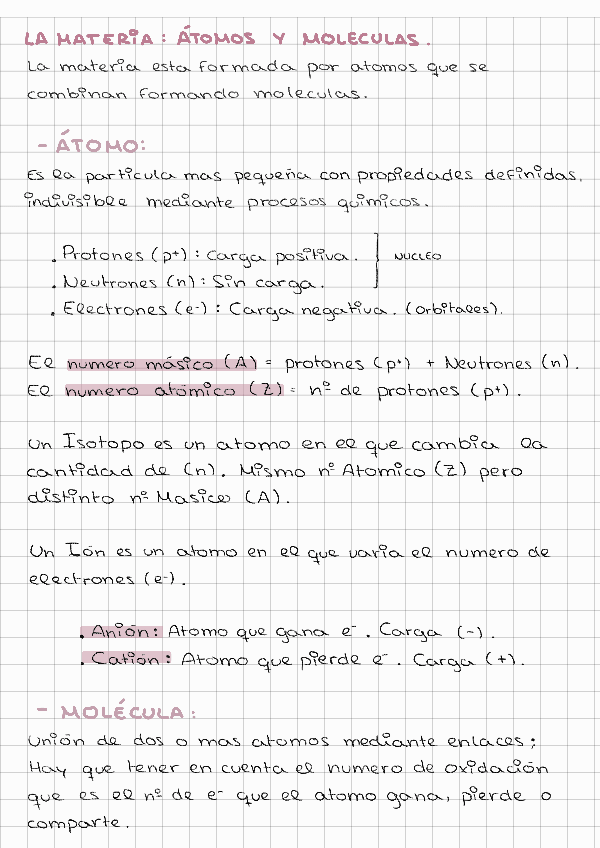 LA MATERIA: ÁTOMOS Y MOLECULAS.
La materia esta formada por atomos que se
combinan formando moleculas.
- ÁTOMO:
Es la particula mas pequeña con propiedades definidas,
indivisible mediante procesos quimicos.
. Protones (p+): carga positiva.
NUCLEO
. Neutrones (n): Sin carga.
. Electrones (e-): Carga negativa. (orbitales).
El numero másico (A) = protones (p+) + Neutrones (n).
El numero atómico (Z) = nº de protones (p+).
Un Isotopo es un atomo en el que cambia la
cantidad de (n). Mismo nº Atomico (Z) pero
distinto nº Masico (A).
Un Ión es un atomo en el que varia el numero de
electrones (e-).
. Anión: Atomo que gana e-. Carga (-).
. Catión: Atomo que pierde e-. Carga (+).
- MOLÉCULA:
Unión de dos o mas atomos mediante enlaces;
Hay que tener en cuenta el numero de oxidación
que es el nº de e- que el atomo gana, pierde o
comparte.